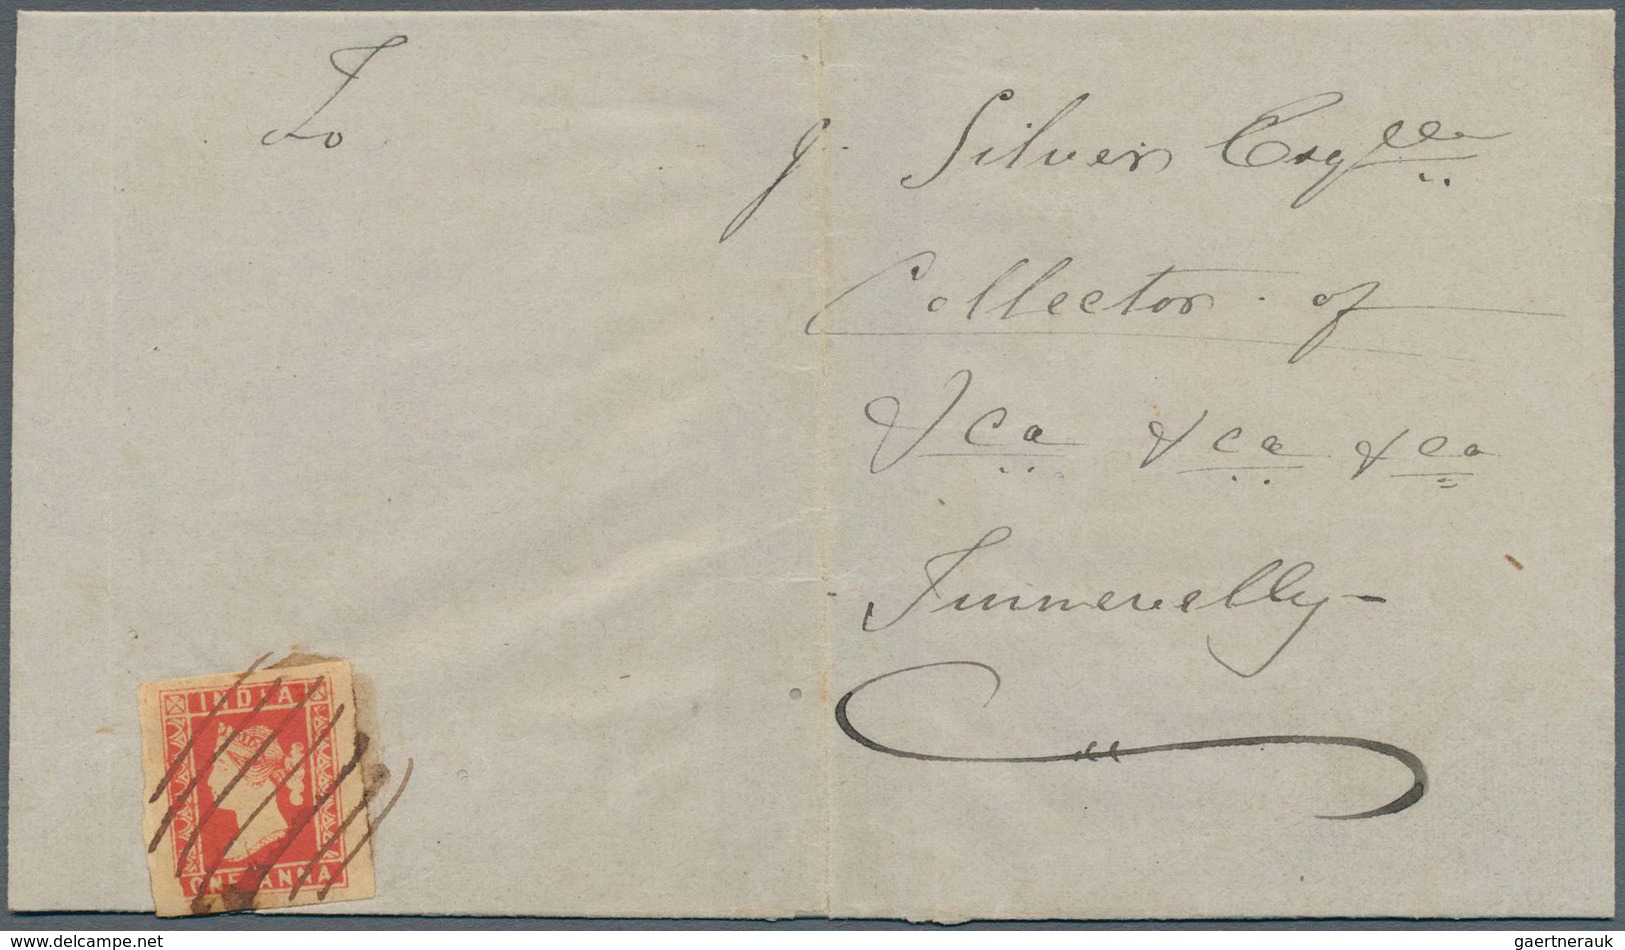 To
J. Silver Esqre
Collector of
&ca &ca &ca
Tinnevelly -
INDIA
ONE ANNA
www.delcampe.net
gaertnerauk